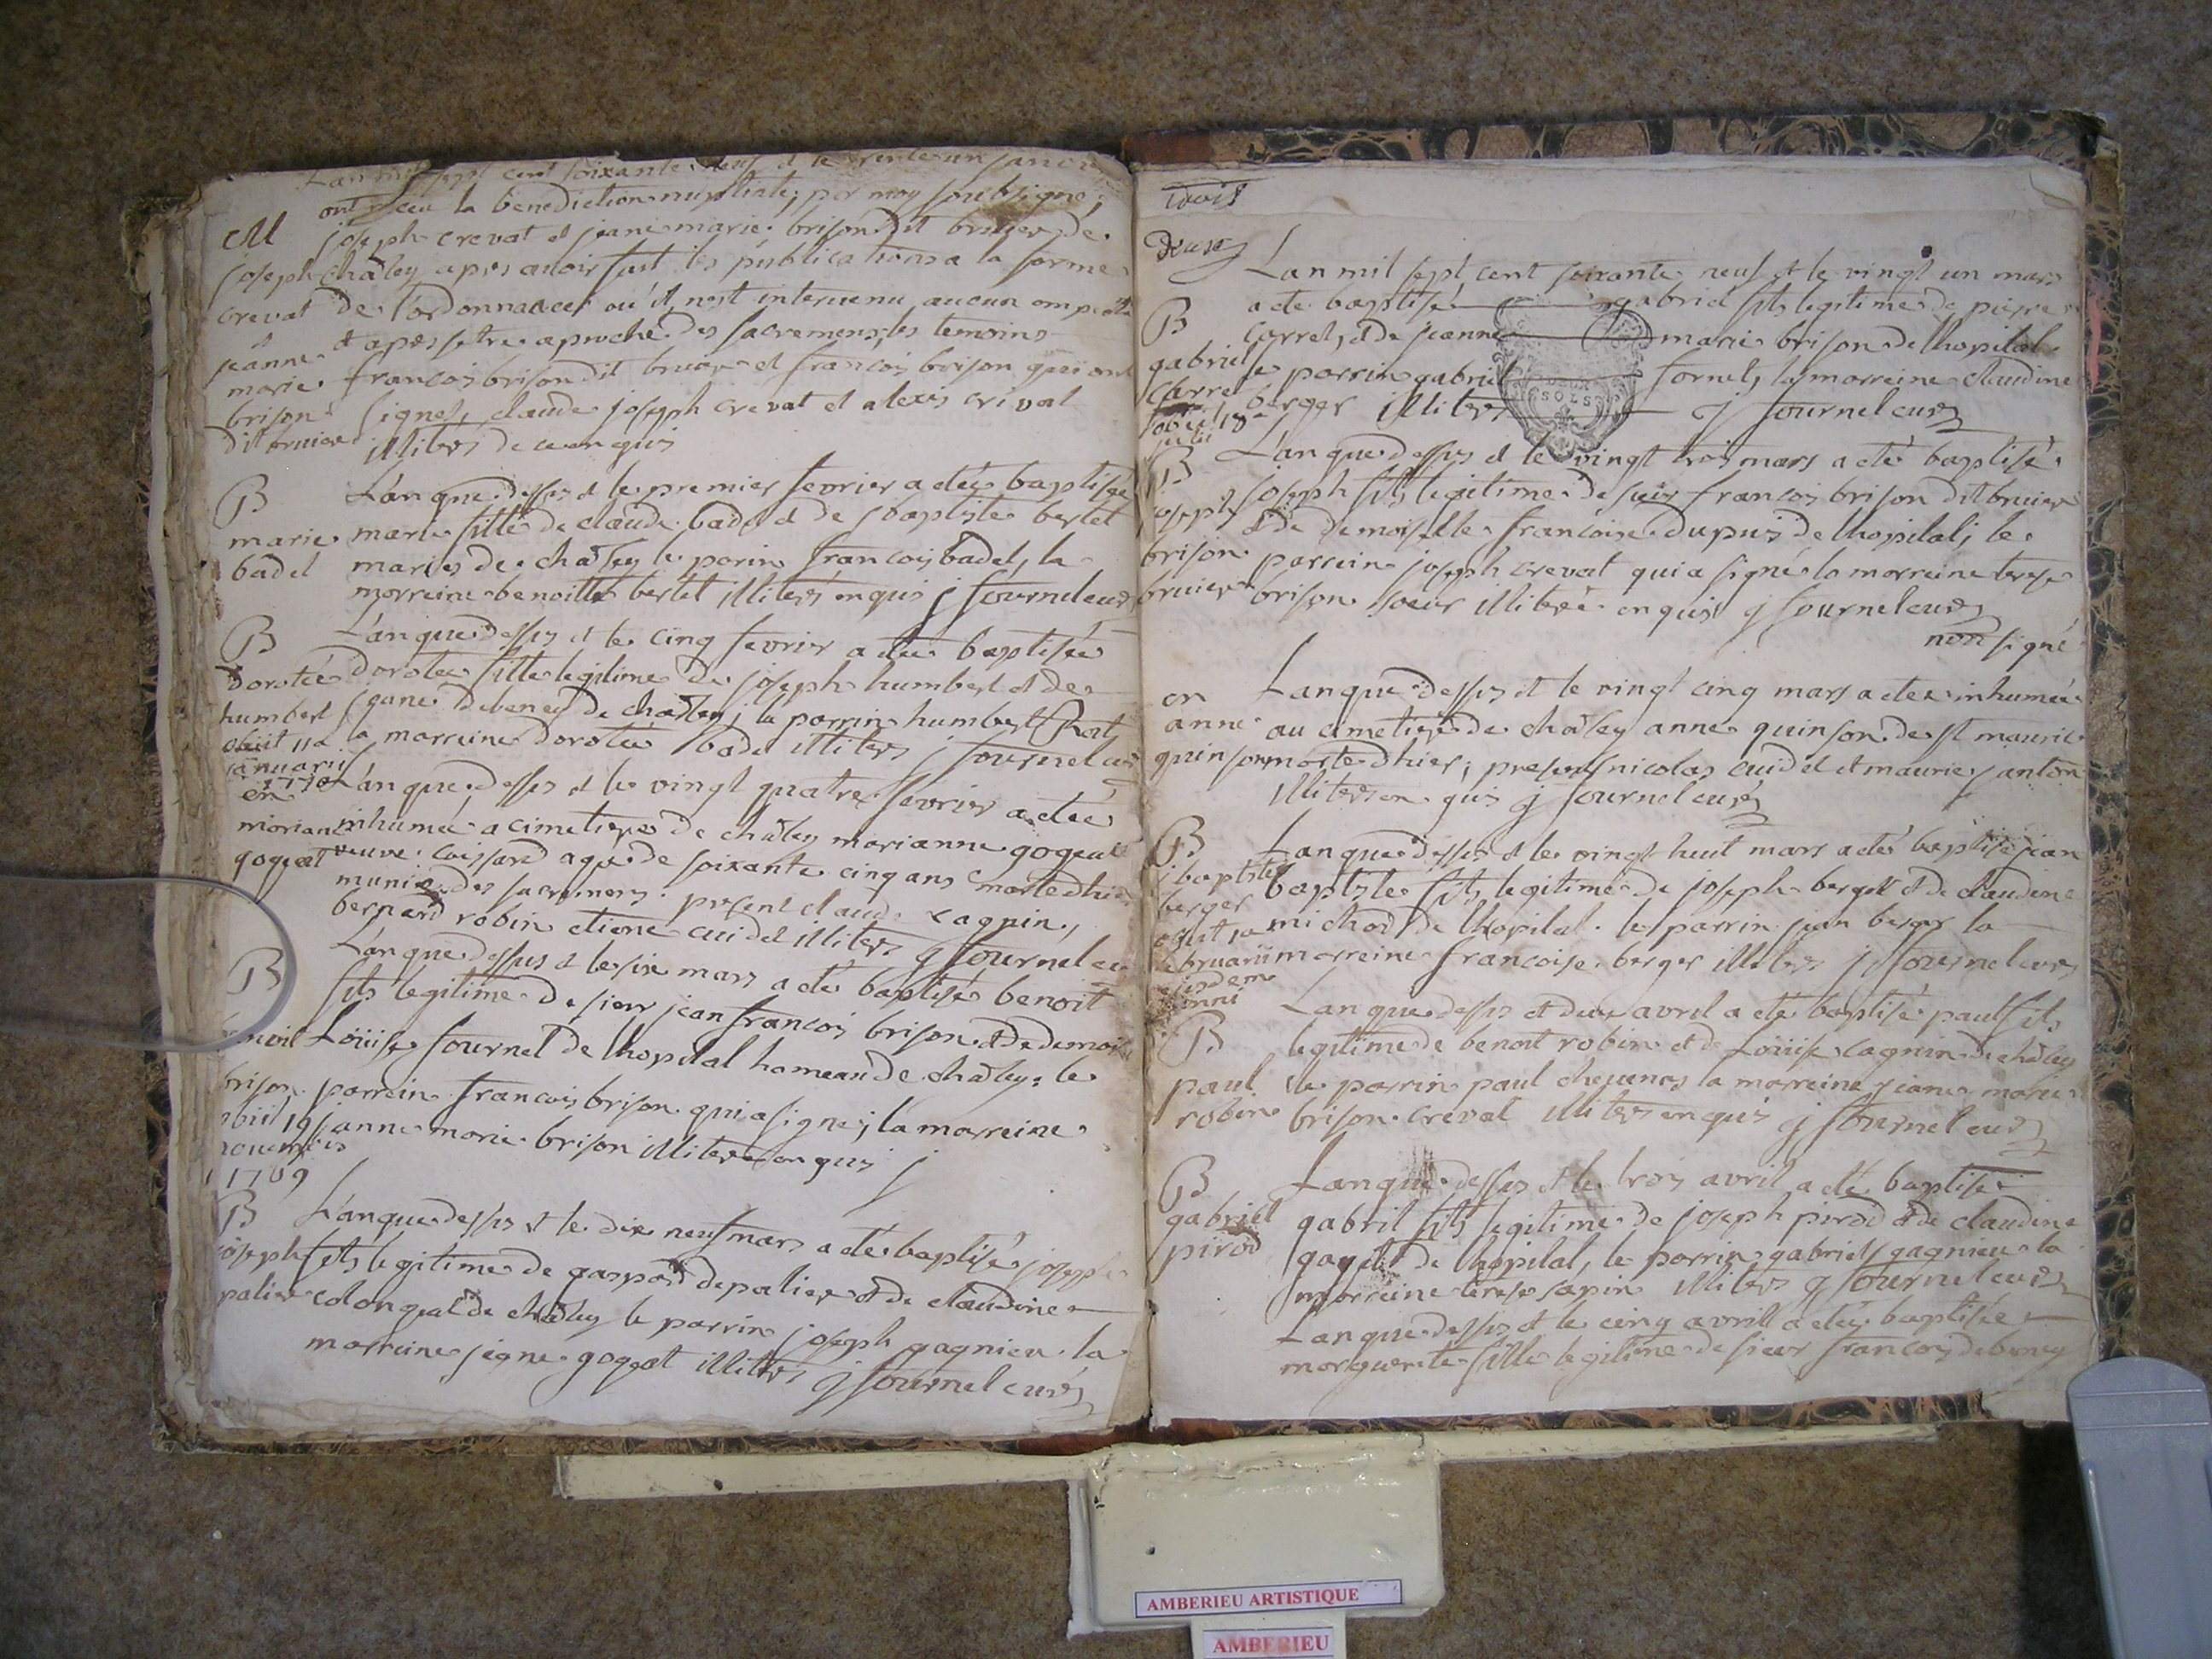 Lan mil sept cent soixante neuf et le trente un janvier
ont receu la benediction nuptiale, par moy soubsigné,
M joseph crevat et jeane marie brison dit bruier de
joseph chasley apres avoir fait les publications a la forme
crevat de l'ordonnance ou il nest intervenu aucun
et
jeanne et apres setre aproché des sacremens, les temoins
marie francois brison dit bruier et francois brison qui ont
brison signes, claude joseph crevat et alexis crivat
dit bruier illiters de ce enquis
B L'an que dessus et le premier fevrier a eté baptisée
marie marie fille de claude badel et de jbaptiste berlet
badel maries de chasley le parin francois badel, la
marreine benoitte berlet illiters enquis j fournel curé
B L'an que dessus et le cinq fevrier a eté baptisée
dorotée dorotée fille legitime de joseph humbert et de
humbert jeane debeney de chasley, le parrin humbert
obiit 11a la marreine dorotée badel illiters j fournel curé
januarii
1770 L'an que dessus et le vingt quatre fevrier a eté
en
mariane inhumée a cimetiere de chasley marianne gogeat
gogeat veuve coissard agée de soixante cinq ans morte dhier
munie des sacremens. present claude cagnin,
bernard robin etiene cuidel illiters j fournel curé
L'an que dessus et le six mars a eté baptisé benoit
B fils legitime de sieur jean francois brison et de demois
benoit Loüise fournel de lhopital hameau de chasley, le
brison parrein francois brison qui a signé, la marreine
obiit 19 jeanne marie brison illiteré enquis j
1769
B L'an que dessus et le dix neuf mars a eté baptisé joseph
joseph fils legitime de gaspard depalier et de claudine
palier colongeat de chasley le parrin joseph gagnieu la
marreine jeane gogeat illiters j fournel curé
trois
deux
L'an mil sept cent soixante neuf et le vingt un mars
a eté baptisé gabriel fils legitime de pierre
B carrel, et de jeanne marie brison de lhopital
gabriel le parrin gabriel fornel, la marreine claudine
carrel berger illiters j fournel curé
obiit 18a
julii
DEUX
SOLS
B L'an que dessus et le vingt trois mars a eté baptisé
joseph joseph fils legitime de sieur francois brison dit bruier
et de demoiselle francoise dupuis de lhopital, le
brison parrein joseph crevat qui a signé la marreine terese
bruier brison soeur illiteré enquis j fournel curé
non signé
en L'an que dessus et le vingt cinq mars a eté inhumée
anne au cimetiere de chasley anne quinson de st mauric
quinson morte dhier, presens nicolas cuidel et maurice janton
illiters enquis j fournel curé
B L'an que dessus et le vingt huit mars a eté baptisé jean
jbaptiste baptiste fils legitime de joseph berger et de claudine
berger michod de lhopital. le parrin jean berger la
obiit 1a
februarii marreine francoise berger illiters j fournel curé
ejusdem
anni L'an que dessus et deux avril a eté baptisé paul fils
B legitime de benoit robin et de Loüise cagnin de chasley
paul le parrin paul chevenas la marreine jeane marie
robin brison crevat illiters enquis j fournel curé
B L'an que dessus et le trois avril a eté baptisé
gabriel gabril fils legitime de joseph pirod et de claudine
pirod gayet de lhopital, le parrin gabriel gagnieu la
marreine terese sapin illiters j fournel curé
L'an que dessus et le cinq avril a eté baptisée
marguerite fille legitime de sieur francois debeney
AMBERIEU ARTISTIQUE
AMBERIEU